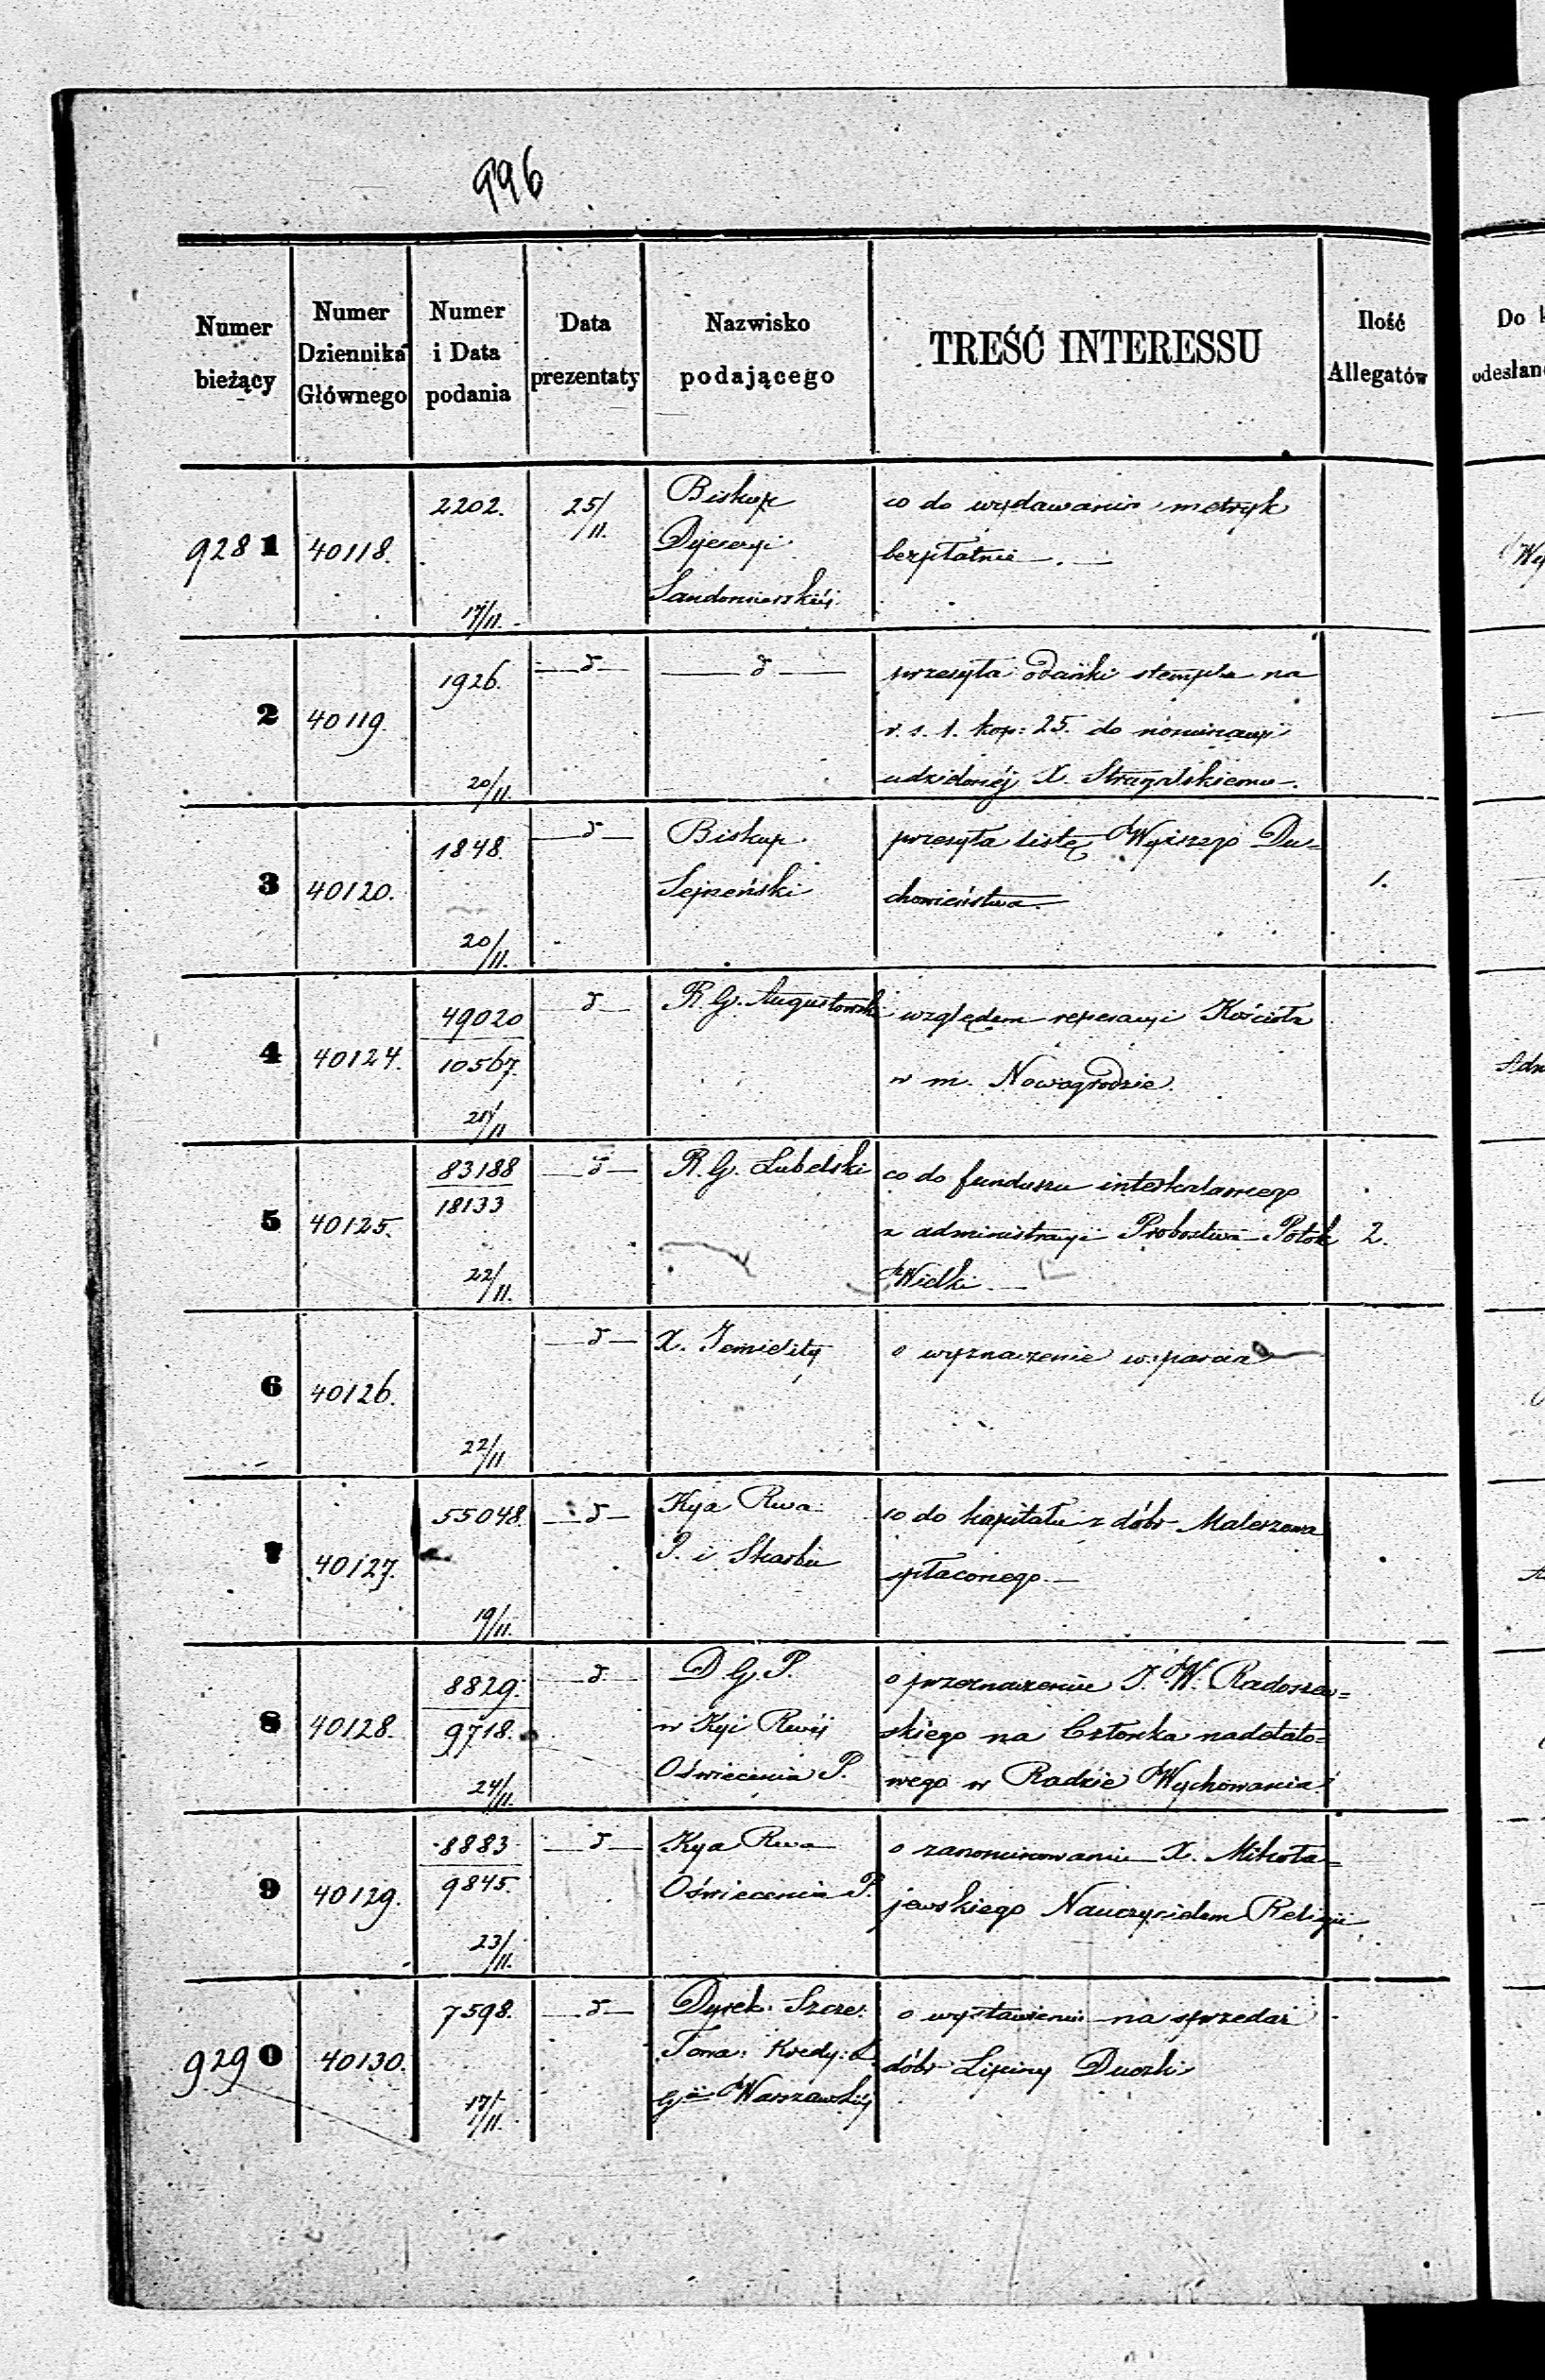 996
Numer bieżący
Numer Dziennika Głównego
Numer i Data podania
Data prezentaty
Nazwisko podającego
TREŚĆ INTERESSU
Ilość Allegatów
Do
odesłan
9281 40118. 2202. 17/11. 25/11.
Biskup
Dyecezyi
Sandomierskiéj
co do wydawania metryk
bezpłatnie.
2 40119. 1926. 20/11. — d — — d —
przesyła stempla na
r. s. 1. kop: 25. do nominacyi
udzielonéj X.
3 40120. 1848. 20/11. — d —
Biskup
Sejneński
przesyła listę Wyższego Du=
chowieństwa. 1.
4 40124. 49020 10567. 21/11 d —
R. G. Augustowski
względem reperacyi Kościoła
w m. Nowogrodzie.
5 40125. 83188 18133 22/11. — d —
R. G. Lubelski
co do funduszu interkalarnego
z administracyi Probostwa Potok 2.
Wielki. —
6 40126. 22/11 — d —
X.
o wyznaczenie wsparcia
7 40127. 55048. 19/11. — d —
Kya Rwa
P. i Skarbu
co do kapitału z dóbr Maleszowa
spłaconego. —
8 40128. 8829. 9718. 24/11. — d —
D. G. P.
w Kyi Rwéj
Oświecenia P.
o przeznaczeniu J. W. Radoszew=
skiego na Członka nadetato=
wego w Radzie Wychowania
9 40129. 8883 9845. 23/11. — d —
Kya Rwa
Oświecenia P.
o zanominowaniu X. Mikoła=
jewskiego Nauczycielem Religii
9290 40130. 7598. 17/11. — d —
Dyrek: Szcze:
Towa: Kredy:
Gii Warszawskiéj
o wystawieniu na sprzedaż
dóbr Lipiny